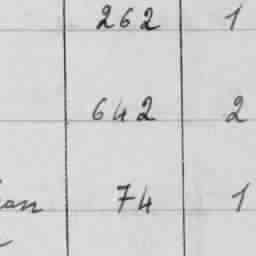 262 1
642 2
74 1